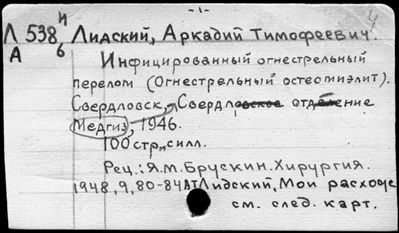 -1-
Л 538 и Лидский, Аркадий Тимофеевич. 4
А 6
Инфицированный огнестрельный
перелом (Огнестрельный остеомиэлит).
Свердловск, Свердловское отделение
Медгиз, 1946.
100 стр., силл.
Рец.: Я.М. Брускин. Хирургия.
1948, 9, 80-84 АТЛидский, Мои расхож
см. след. карт.